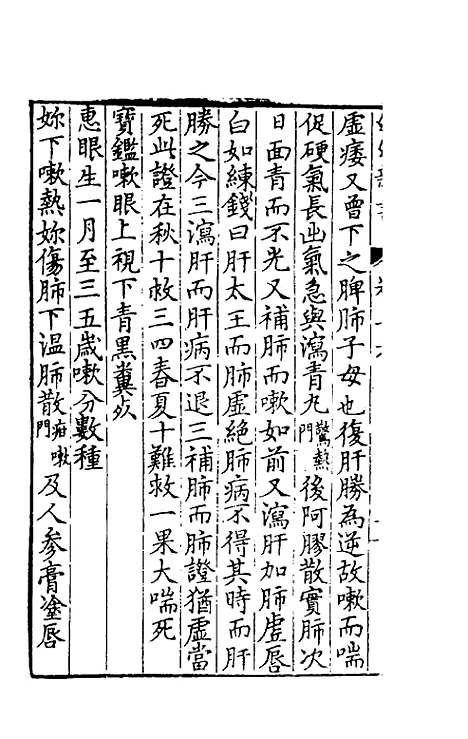 虛痿又曾下之脾肺子母也復肝勝為逆故嗽而喘
促硬氣長出氣急與瀉青丸驚熱門後阿膠散實肺次
日面青而不光又補肺而嗽如前又瀉肝加肺虛唇
白如練錢曰肝太王而肺虛絕肺病不得其時而肝
勝之今三瀉肝而肝病不退三補肺而肺證猶虛當
死此證在秋十救三四春夏十難救一果大喘死
寶鑑嗽眼上視下青黑糞必
惠眼生一月至三五歲嗽分數種
妳下嗽熱妳傷肺下溫肺散疳嗽門及人參膏塗唇